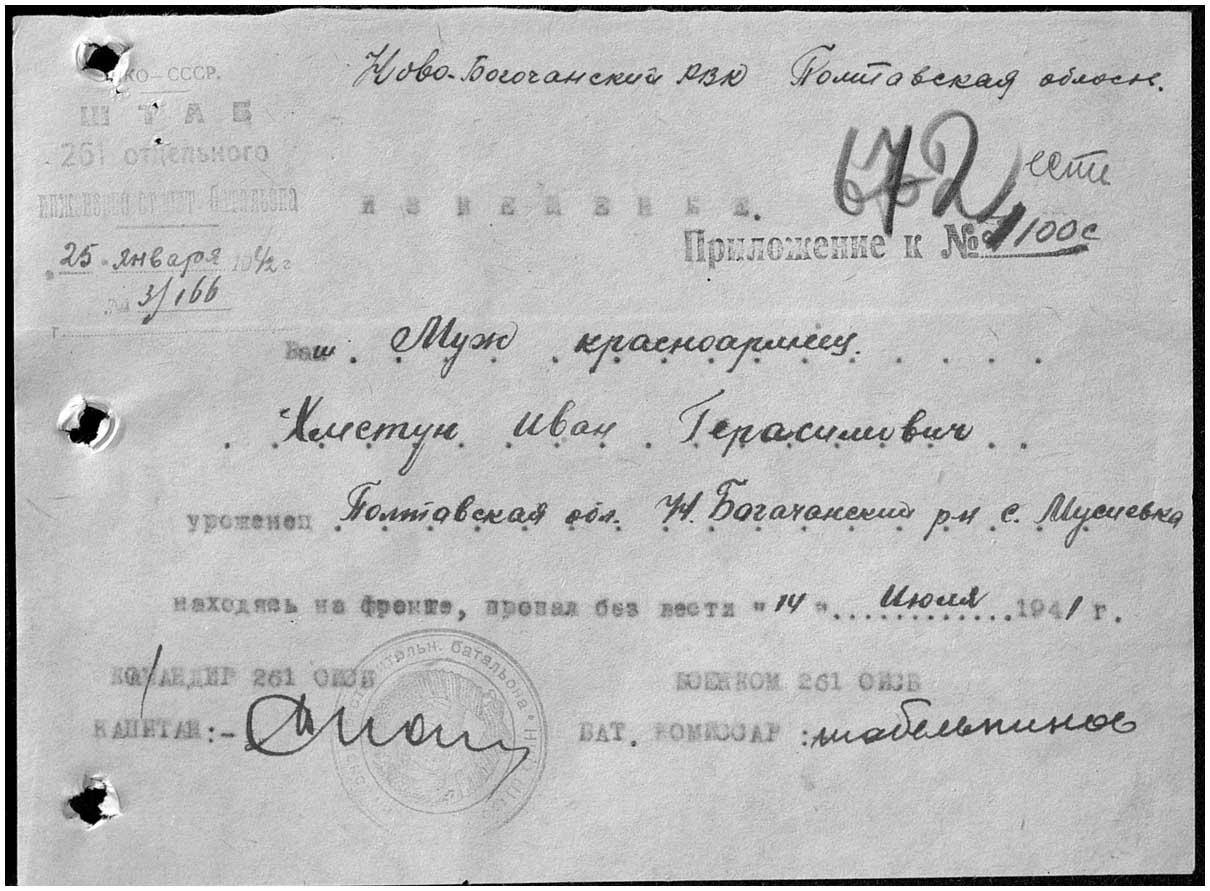 Ново-Богочанский РВК Полтавская област.
НКО–СССР.
ШТАБ
261 отдельного
инженерно строит. батальона
"25" января 1942 г
№ 3/166
г.
672
ести
ИЗВЕЩЕНИЕ.
Приложение к № 1100с
Ваш. Муж красноармеец.
Хлистун Иван Герасимович
уроженец Полтавская обл. Н. Богачанский р-н с. Мусиевка
находясь на фронте, пропал без вести "14" Июля 1941 г.
КОМАНДИР 261 ОИСБ
ВОЕНКОМ 261 ОИСБ
КАПИТАН:-
БАТ. КОМИССАР:
строительн. батальона